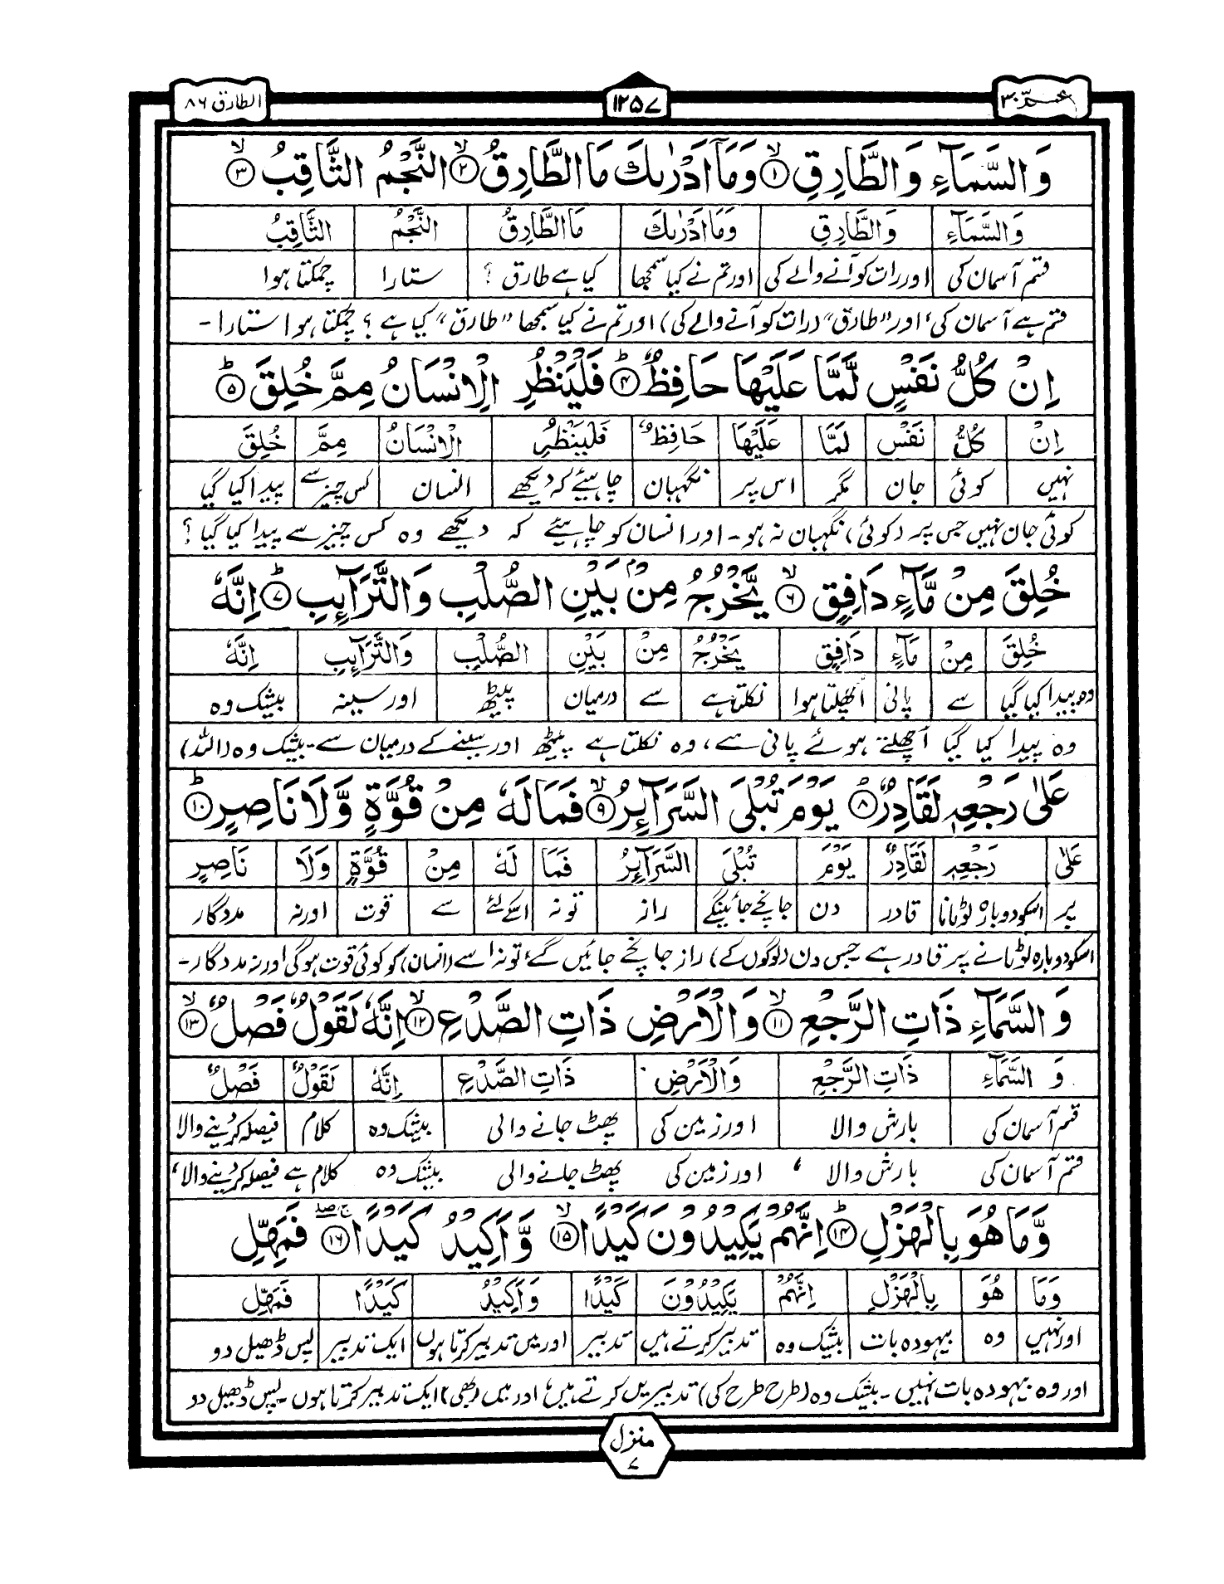 عمّ ۳۰
۱۲۵۷
الطارق ۸۶
وَالسَّمَآءِ وَالطَّارِقِ ۙ۱ وَمَآ اَدْرٰىكَ مَا الطَّارِقُ ۙ۲ النَّجْمُ الثَّاقِبُ ۙ۳
وَالسَّمَآءِ وَالطَّارِقِ وَمَآ اَدْرٰىكَ مَا الطَّارِقُ النَّجْمُ الثَّاقِبُ
قسم آسمان کی اور رات کو آنے والے کی اور تم نے کیا سمجھا کیا ہے طارق ؟ ستارا چمکتا ہوا
قسم ہے آسمان کی، اور "طارق" (رات کو آنے والے کی) اور تم نے کیا سمجھا "طارق" کیا ہے ؟ چمکتا ہوا ستارا۔
اِنْ كُلُّ نَفْسٍ لَّمَّا عَلَيْهَا حَافِظٌ ۭ۴ فَلْيَنْظُرِ الْاِنْسَانُ مِمَّ خُلِقَ ۭ۵
اِنْ كُلُّ نَفْسٍ لَمَّا عَلَيْهَا حَافِظٌ فَلْيَنْظُرِ الْاِنْسَانُ مِمَّ خُلِقَ
نہیں کوئی جان مگر اس پر نگہبان چاہیئے کہ دیکھے انسان کس چیز سے پیدا کیا گیا
کوئی جان نہیں جس پر (کوئی) نگہبان نہ ہو۔ اور انسان کو چاہیئے کہ دیکھے وہ کس چیز سے پیدا کیا گیا ؟
خُلِقَ مِنْ مَّآءٍ دَافِقٍ ۙ۶ يَّخْرُجُ مِنْۢ بَيْنِ الصُّلْبِ وَالتَّرَآئِبِ ۭ۷ اِنَّهٗ
خُلِقَ مِنْ مَآءٍ دَافِقٍ يَخْرُجُ مِنْ بَيْنِ الصُّلْبِ وَالتَّرَآئِبِ اِنَّهٗ
وہ پیدا کیا گیا سے پانی اچھلتا ہوا نکلتا ہے سے درمیان پیٹھ اور سینہ بیشک وہ
وہ پیدا کیا گیا اچھلتے ہوئے پانی سے، وہ نکلتا ہے پیٹھ اور سینے کے درمیان سے۔ بیشک وہ (اللہ)
عَلٰى رَجْعِهٖ لَقَادِرٌ ۸ يَوْمَ تُبْلَى السَّرَآئِرُ ۙ۹ فَمَا لَهٗ مِنْ قُوَّةٍ وَّلَا نَاصِرٍ ۭ۱۰
عَلٰى رَجْعِهٖ لَقَادِرٌ يَوْمَ تُبْلَى السَّرَآئِرُ فَمَا لَهٗ مِنْ قُوَّةٍ وَلَا نَاصِرٍ
پر اسکو دوبارہ لوٹانا قادر دن جانچے جائینگے راز تو نہ اسکے لئے سے قوت اور نہ مددگار
اسکو دوبارہ لوٹانے پر قادر ہے جس دن (لوگوں کے) راز جانچے جائیں گے، تو نہ اسے (انسان) کو کوئی قوت ہوگی اور نہ مددگار۔
وَالسَّمَآءِ ذَاتِ الرَّجْعِ ۙ۱۱ وَالْاَرْضِ ذَاتِ الصَّدْعِ ۙ۱۲ اِنَّهٗ لَقَوْلٌ فَصْلٌ ۙ۱۳
وَ السَّمَآءِ ذَاتِ الرَّجْعِ وَالْاَرْضِ ذَاتِ الصَّدْعِ اِنَّهٗ لَقَوْلٌ فَصْلٌ
قسم آسمان کی بارش والا اور زمین کی پھٹ جانے والی بیشک وہ کلام فیصلہ کر دینے والا
قسم آسمان کی بارش والا ، اور زمین کی پھٹ جانے والی بیشک وہ کلام ہے فیصلہ کر دینے والا،
وَّمَا هُوَ بِالْهَزْلِ ۭ۱۴ اِنَّهُمْ يَكِيْدُوْنَ كَيْدًا ۙ۱۵ وَّاَكِيْدُ كَيْدًا ۱۶ فَمَهِّلِ
وَمَا هُوَ بِالْهَزْلِ اِنَّهُمْ يَكِيْدُوْنَ كَيْدًا وَاَكِيْدُ كَيْدًا فَمَهِّلِ
اور نہیں وہ بیہودہ بات بیشک وہ تدبیر کرتے ہیں تدبیر اور میں تدبیر کرتا ہوں ایک تدبیر پس ڈھیل دو
اور وہ بیہودہ بات نہیں۔ بیشک وہ (طرح طرح کی) تدبیریں کرتے ہیں، اور میں (بھی) ایک تدبیر کرتا ہوں۔ پس ڈھیل دو
منزل ۷